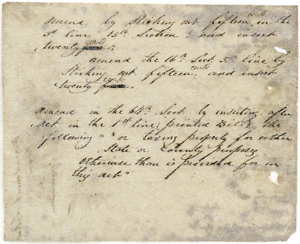 amend by striking out fifteen in the
5th line 15th Section & insert
twenty
amend the 16th Sect 5th line by
striking out fifteen and insert
twenty
amend in the 64th Sect by inserting after
act in the 1st line printed Bill the
following "or taxing property for either
State or County purposes
otherwise than is provided for in
this act"